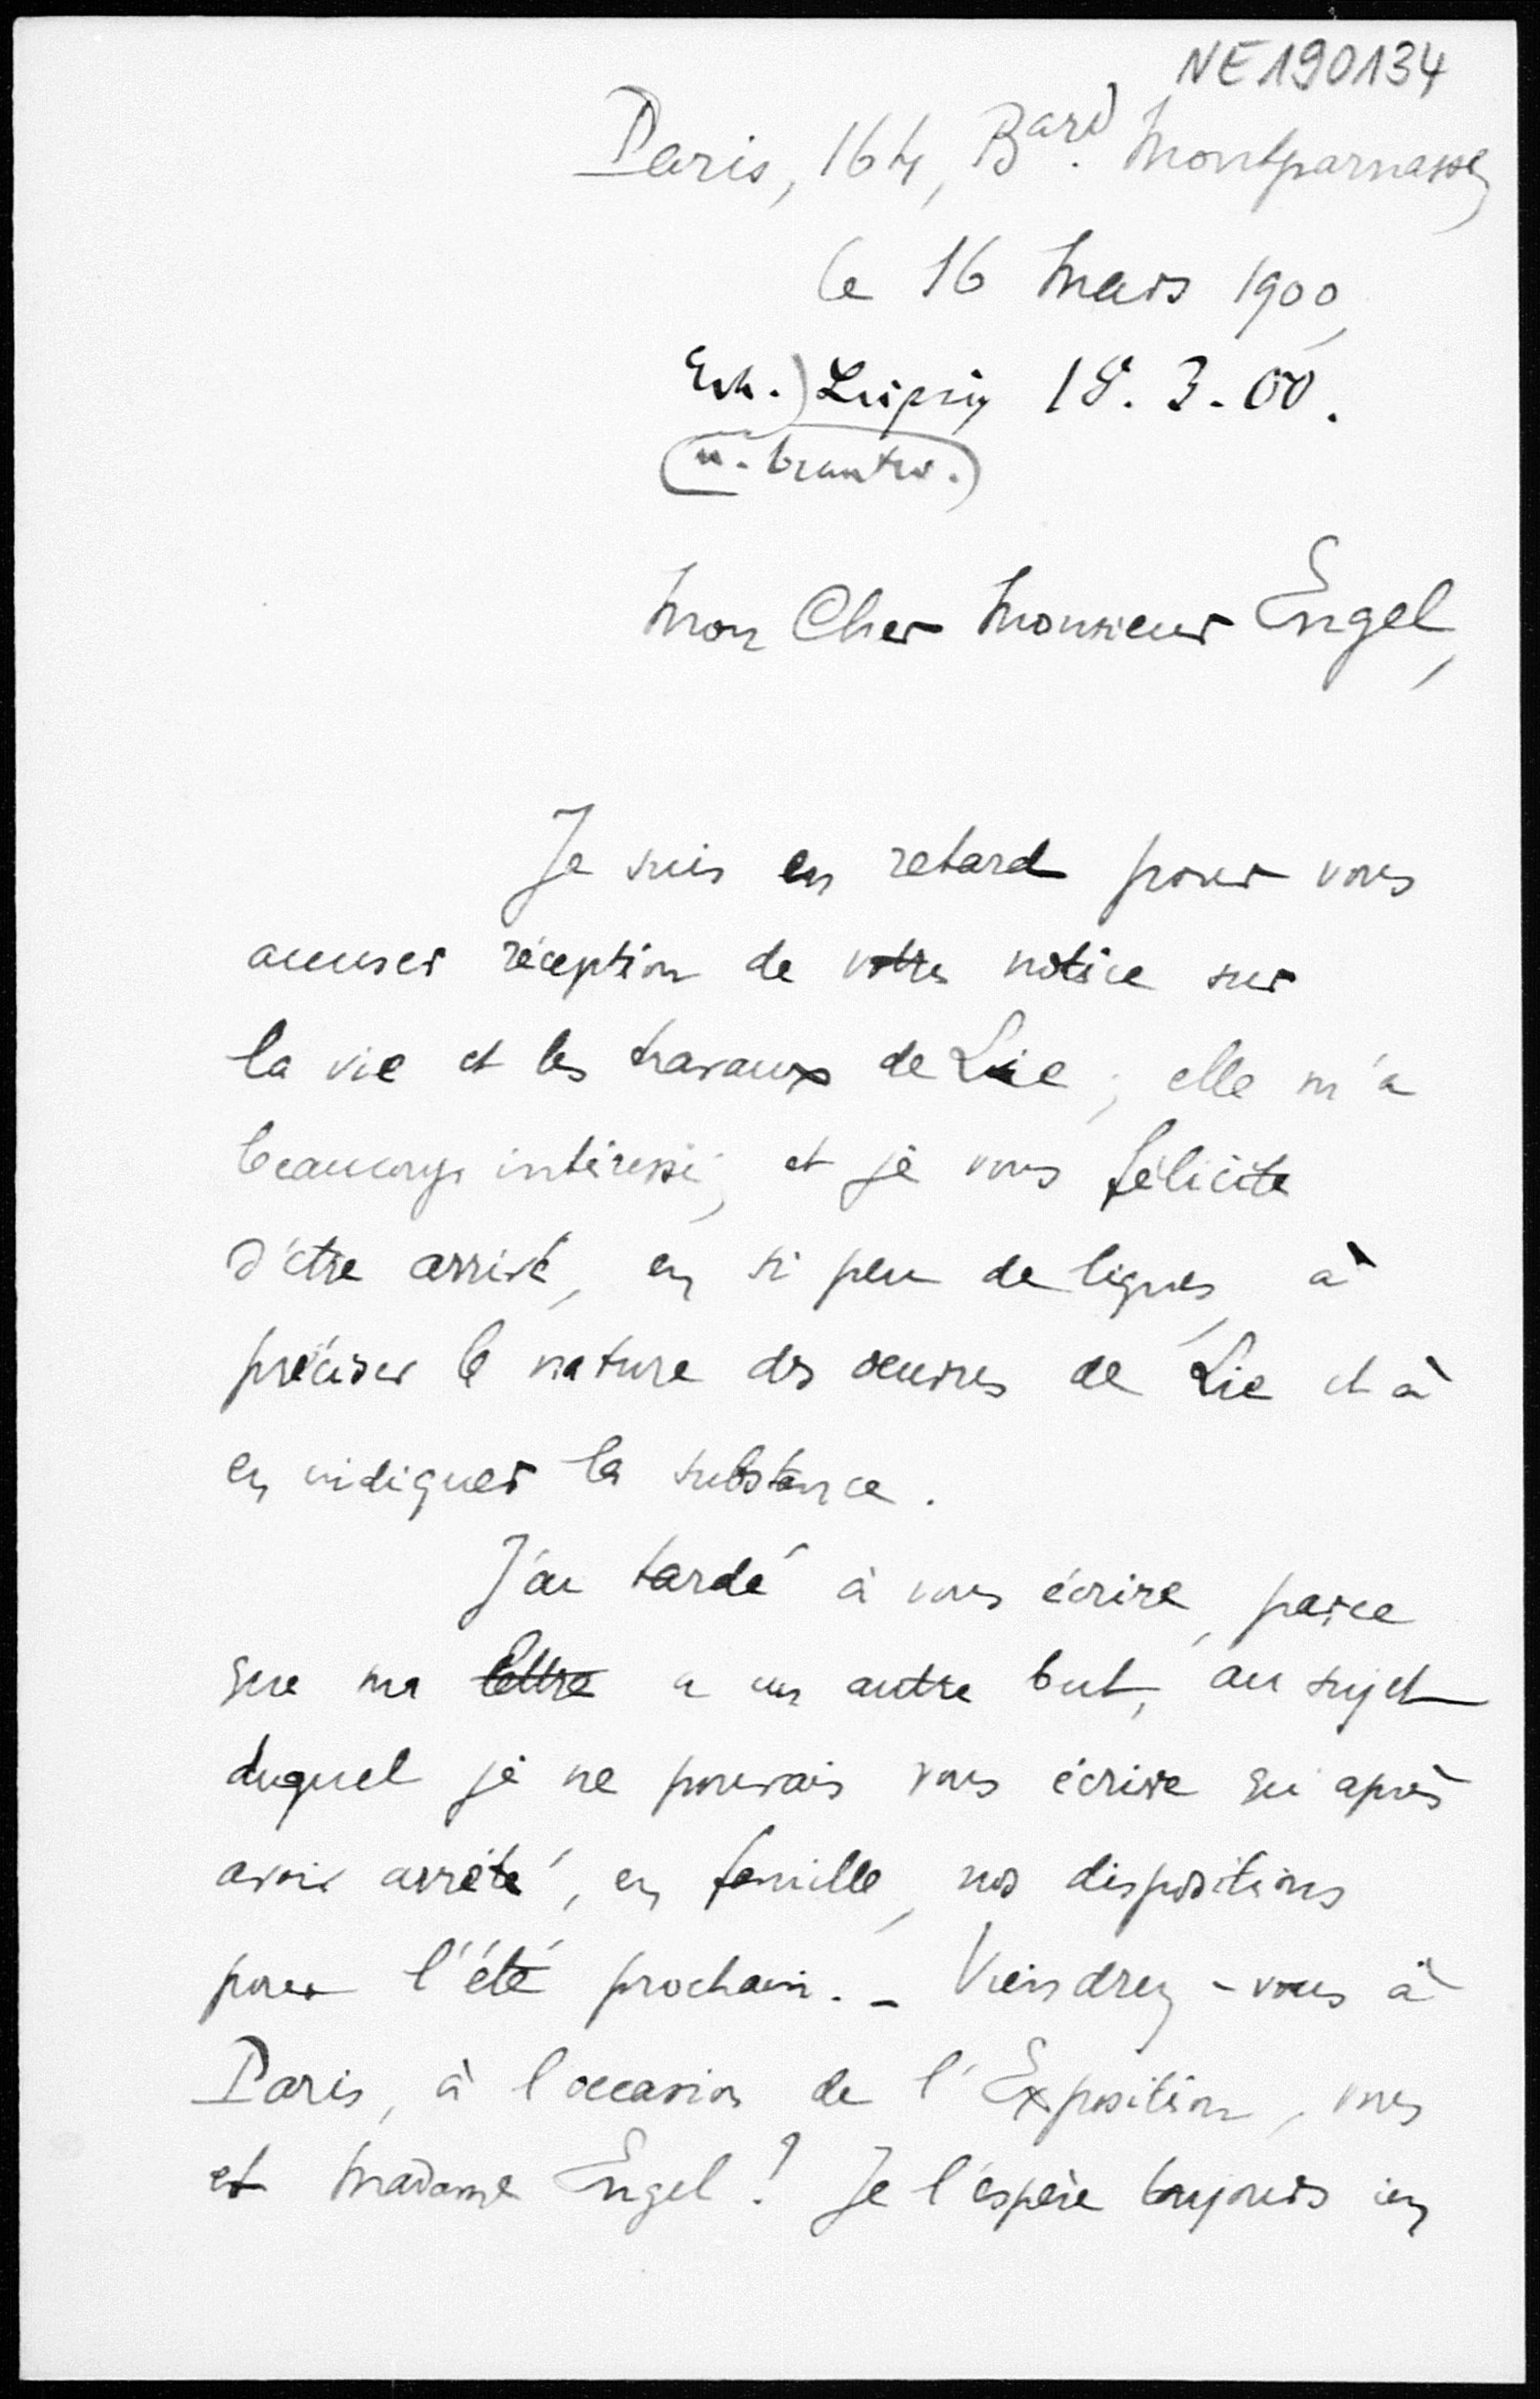 NE190134
Paris, 164, Bard. Montparnasse,
le 16 Mars 1900,
Erh.) Leipzig 18. 3. 00.
(u. beantw.)
Mon Cher Monsieur Engel,
Je suis en retard pour vous
accuser réception de votre notice sur
la vie et les travaux de Lie; elle m'a
beaucoup intéressé, et je vous félicite
d'être arrivé, en si peu de lignes, à
préciser la nature des oeuvres de Lie et à
en indiquer la substance.
J'ai tardé à vous écrire, parce
que ma lettre a un autre but, au sujet
duquel je ne pouvais vous écrire qu'après
avoir arrêté, en famille, nos dispositions
pour l'été prochain. - Viendrez-vous à
Paris, à l'occasion de l'Exposition, vous
et Madame Engel? Je l'espère toujours